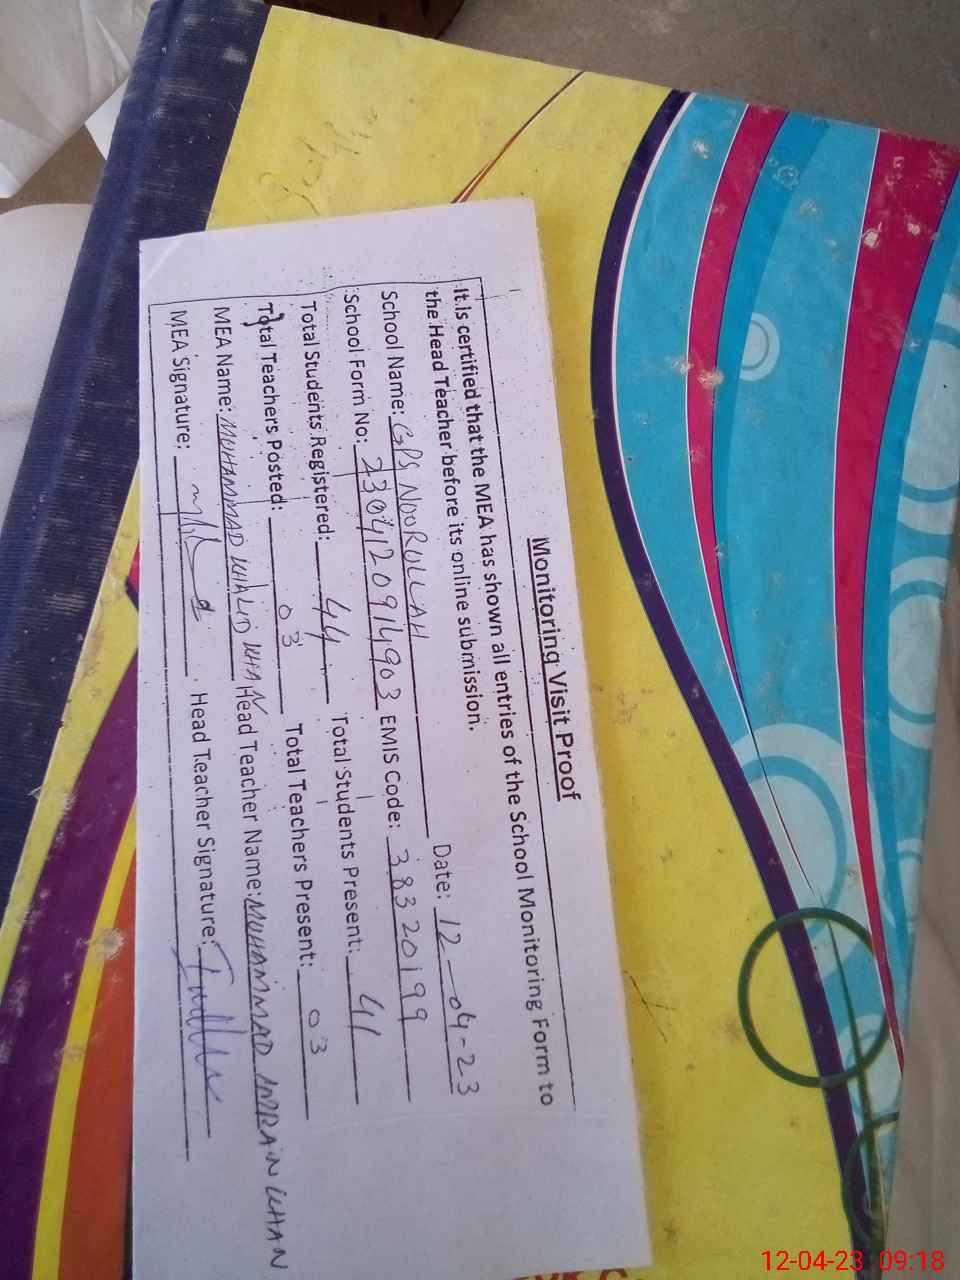 Monitoring Visit Proof
It.Is certified that the MEA has shown all entries of the School Monitoring Form to
the Head Teacher before its online submission.
School Name: GPS NOOROLLAH Date: 12-04-23
School Form No: 2304120914903 EMIS Code: 38320199
Total Students Registered: 44 Total Students Present: 41
Total Teachers Posted: 03 Total Teachers Present: 03
MEA Name: MUHAMMAD KHALID KHAN Head Teacher Name: MUHAMMAD IMRAN KHAN
MEA Signature: Head Teacher Signature:
12-04-23 09:18